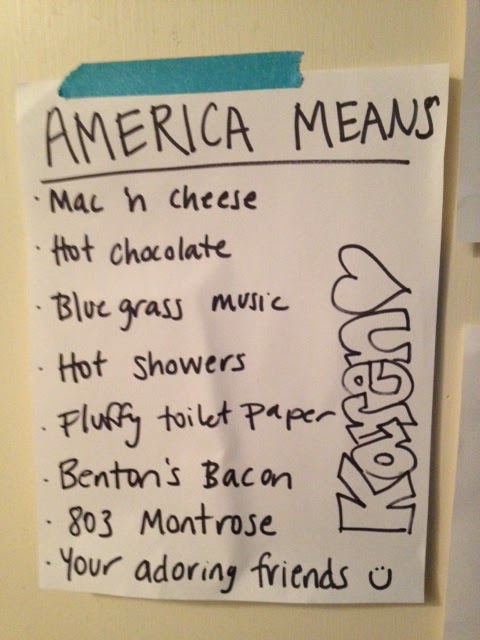 AMERICA MEANS
· Mac 'n cheese
· Hot chocolate
· Blue grass music
· Hot showers
· Fluffy toilet paper
· Benton's Bacon
· 803 Montrose
· Your adoring friends :)
Karen ♡